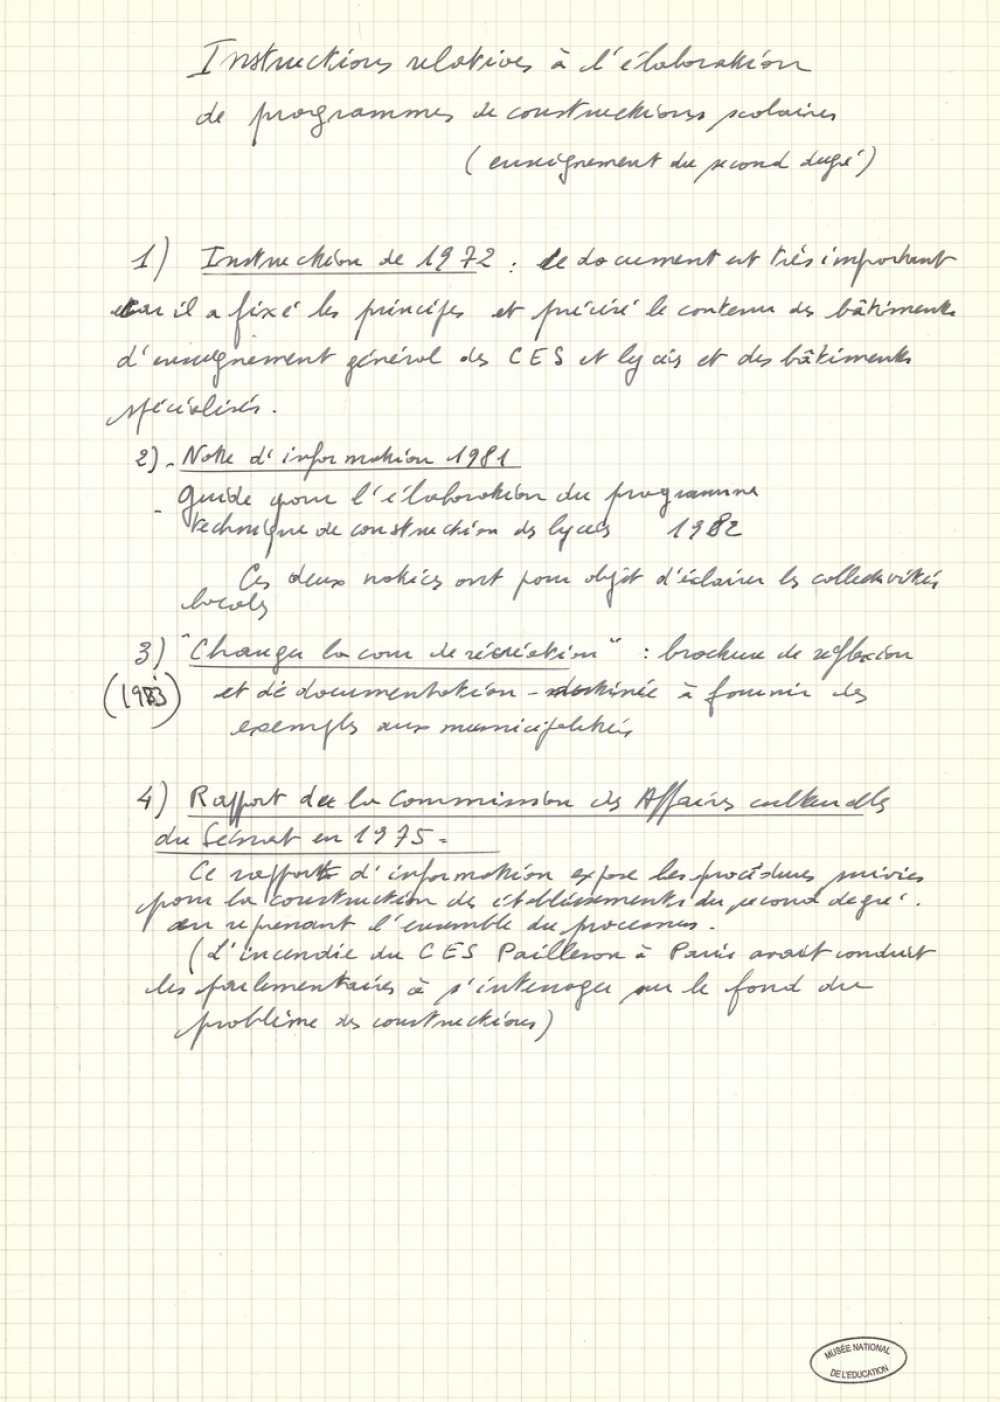 Instructions relatives à l'élaboration
de programmes de constructions scolaires
(enseignement du second degré)
1) Instruction de 1972 : le document est très important
car il a fixé les principes et précisé le contenu des bâtiments
d'enseignement général des CES et lycées et des bâtiments
spécialisés.
2) - Note d'information 1981
- Guide pour l'élaboration du programme
technique de construction des lycées 1982
Ces deux notices ont pour objet d'éclairer les collectivités
locales
3) "Changer la cour de récréation" : brochure de réflexion
(1983) et de documentation - destinée à fournir des
exemples aux municipalités
4) Rapport de la Commission des Affaires culturelles
du Sénat en 1975 -
Ce rapport d'information expose les procédures suivies
pour la construction des établissements du second degré.
en reprenant l'ensemble du processus.
(L'incendie du CES Pailleron à Paris avait conduit
les parlementaires à s'interroger sur le fond du
problème des constructions)
MUSÉE NATIONAL
DE L'EDUCATION